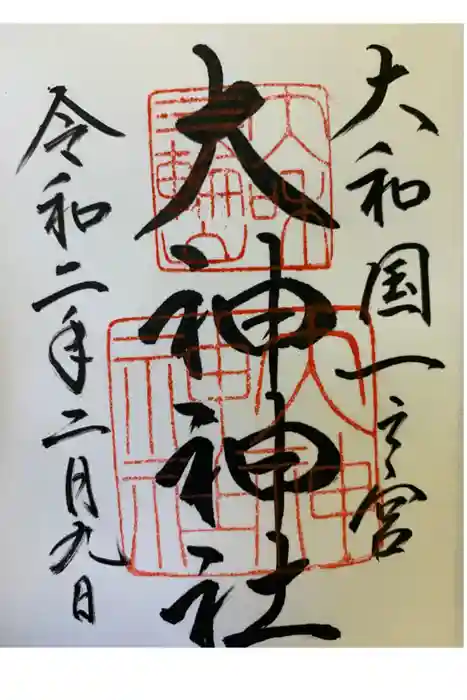 大和国一之宮
大神神社
令和二年二月九日
大神神社